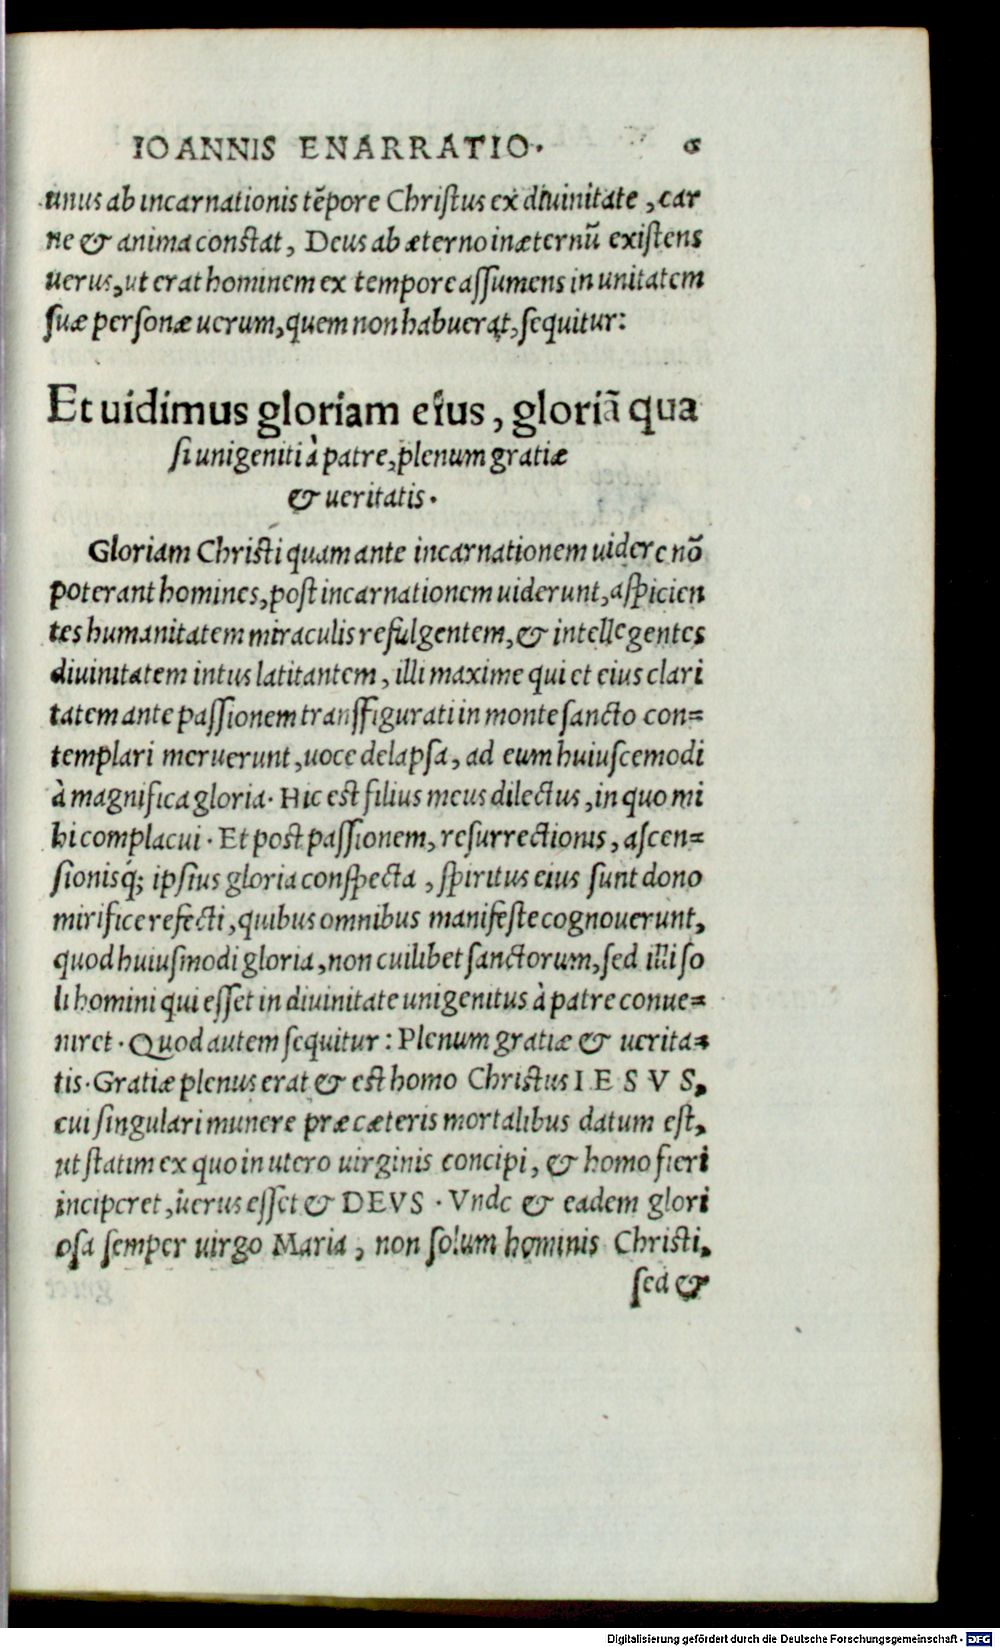 IOANNIS ENARRATIO. 6
unus ab incarnationis tẽpore Christus ex diuinitate, car
ne & anima constat, Deus ab æterno in æternũ existens
uerus, ut erat hominem ex tempore assumens in unitatem
suæ personæ uerum, quem non habuerat, sequitur:
Et uidimus gloriam eius, gloriã qua
si unigeniti à patre, plenum gratiæ
& ueritatis.
Gloriam Christi quam ante incarnationem uidere nõ
poterant homines, post incarnationem uiderunt, aspicien
tes humanitatem miraculis refulgentem, & intellegentes
diuinitatem intus latitantem, illi maxime qui et eius clari
tatem ante passionem transfigurati in monte sancto con=
templari meruerunt, uoce delapsa, ad eum huiuscemodi
à magnifica gloria. Hic est filius meus dilectus, in quo mi
hi complacui. Et post passionem, resurrectionis, ascen=
sionisq́; ipsius gloria conspecta, spiritus eius sunt dono
mirifice refecti, quibus omnibus manifeste cognouerunt,
quod huiusmodi gloria, non cuilibet sanctorum, sed illi so
li homini qui esset in diuinitate unigenitus à patre conue=
niret. Quod autem sequitur: Plenum gratiæ & uerita=
tis. Gratiæ plenus erat & est homo Christus I E S V S,
cui singulari munere præ cæteris mortalibus datum est,
ut statim ex quo in utero uirginis concipi, & homo fieri
inciperet, uerus esset & DEVS. Vnde & eadem glori
osa semper uirgo Maria, non solum hominis Christi,
sed &
Digitalisierung gefördert durch die Deutsche Forschungsgemeinschaft - DFG